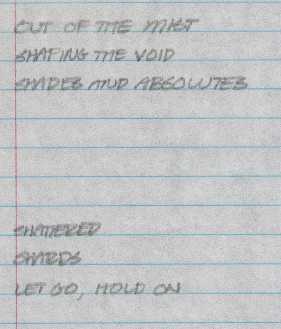 OUT OF THE MIST
SHAPING THE VOID
SHADES AND ABSOLUTES
SHATTERED
SHARDS
LET GO, HOLD ON